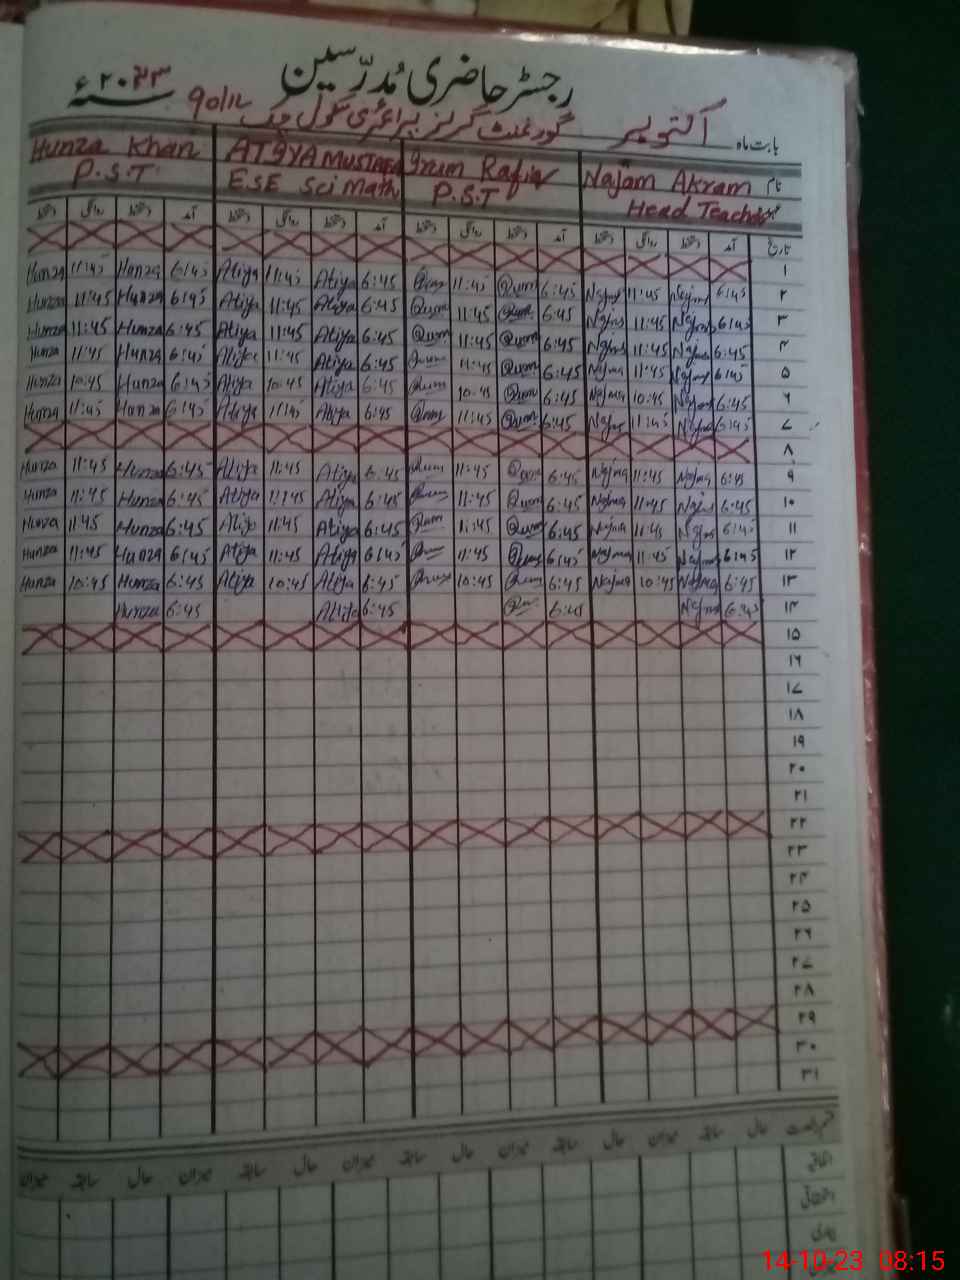 رجسٹر حاضری مُدرّسین
۲۰۲۳ ۹۰/۱۲
بابت ماہ اکتوبر گورنمنٹ گرلز پرائمری سکول چک
Hunza Khan ATIYA MUSTAFA Irum Rafiq Najam Akram نام
P.S.T ESE Sci Math P.S.T Head Teacher
دستخط روانگی دستخط آمد دستخط روانگی دستخط آمد دستخط روانگی دستخط آمد دستخط روانگی دستخط آمد تاریخ
۱
Hunza 11:45 Hunza 6:45 Atiya 11:45 Atiya 6:45 11:45 6:45 11:45 6:45 ۲
Hunza 11:45 Hunza 6:45 Atiya 11:45 Atiya 6:45 11:45 6:45 11:45 6:45 ۳
Hunza 11:45 Hunza 6:45 Atiya 11:45 Atiya 6:45 11:45 6:45 11:45 6:45 ۴
Hunza 11:45 Hunza 6:45 Atiya 11:45 Atiya 6:45 11:45 6:45 11:45 6:45 ۵
Hunza 10:45 Hunza 6:45 Atiya 10:45 Atiya 6:45 10:45 6:45 10:45 6:45 ۶
Hunza 11:45 Hunza 6:45 Atiya 11:45 Atiya 6:45 11:45 6:45 11:45 6:45 ۷
۸
Hunza 11:45 Hunza 6:45 Atiya 11:45 Atiya 6:45 11:45 6:45 Najma 11:45 Najma 6:45 ۹
Hunza 11:45 Hunza 6:45 Atiya 11:45 Atiya 6:45 11:45 6:45 Najma 11:45 6:45 ۱۰
Hunza 11:45 Hunza 6:45 Atiya 11:45 Atiya 6:45 11:45 6:45 Najma 11:45 6:45 ۱۱
Hunza 11:45 Hunza 6:45 Atiya 11:45 Atiya 6:45 11:45 6:45 Najma 11:45 6:45 ۱۲
Hunza 10:45 Hunza 6:45 Atiya 10:45 Atiya 6:45 10:45 6:45 Najma 10:45 Najma 6:45 ۱۳
Hunza 6:45 Atiya 6:45 6:45 6:45 ۱۴
۱۵
۱۶
۱۷
۱۸
۱۹
۲۰
۲۱
۲۲
۲۳
۲۴
۲۵
۲۶
۲۷
۲۸
۲۹
۳۰
۳۱
میزان سابقہ حال میزان سابقہ حال میزان سابقہ حال میزان سابقہ حال قسم رخصت
اتفاقیہ
استحقاقی
بیماری
14-10-23 08:15